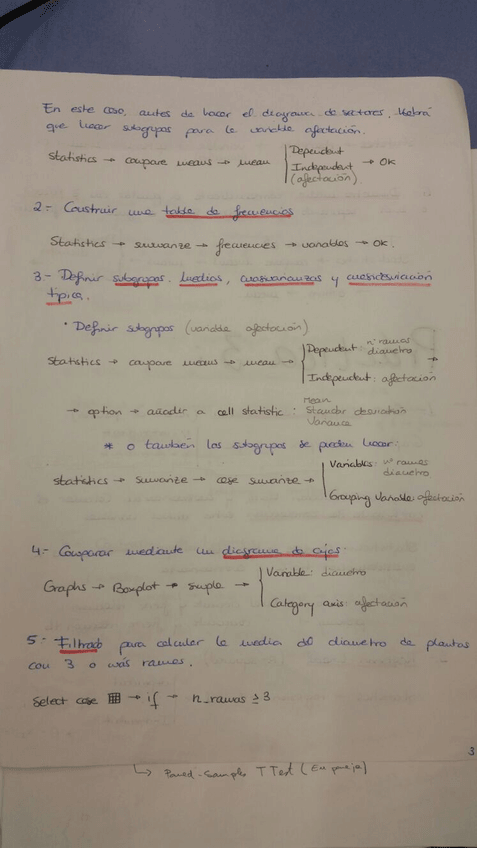 En este caso, antes de hacer el diagrama de sectores, habrá
que hacer subgrupos para la variable afectación.
Statistics → compare means → mean
Dependent
Independent
(afectación)
→ OK
2.- Construir una tabla de frecuencias
Statistics → sumarize → frecuencies → variables → OK.
3.- Definir subgrupos, medias, cuasivarianzas y cuasidesviación
típica.
• Definir subgrupos (variable afectación)
Statistics → compare means → mean →
Dependent: nº ramas
diametro
→
Independent: afectación
→ option → añadir a cell statistic: Mean
Standar desviation
Variance
* o también los subgrupos se pueden hacer:
Statistics → Sumarize → case sumarize →
Variables: nº ramas
diametro
Grouping Variable: afectación
4.- Comparar mediante un diagrama de cajas.
Graphs → Boxplot → simple →
Variable: diametro
Category axis afectación
5.- Filtrado para calcular la media del diametro de plantas
con 3 o más ramas.
Select case → if → n_ramas ≥ 3
3
↳ Pared-Samples T Test (En pareja)